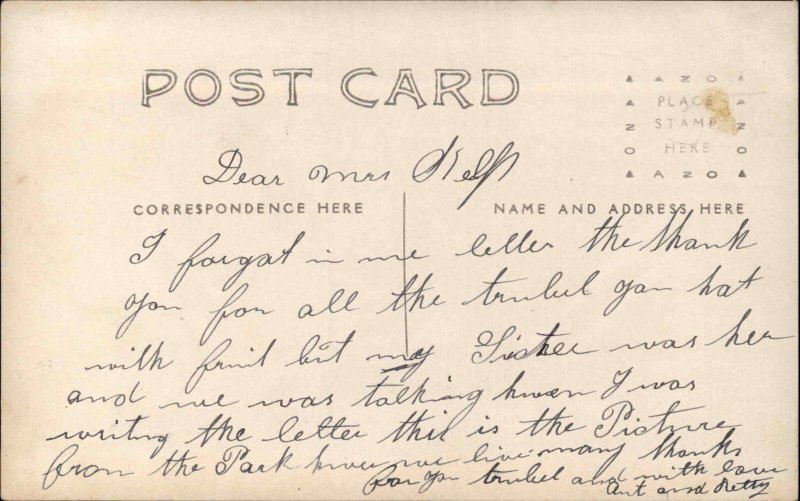 POST CARD
AZO
PLACE
STAMP
HERE
AZO
Dear Mrs
CORRESPONDENCE HERE
NAME AND ADDRESS HERE
I forgot in me letter the thank
you for all the trubel you hat
with fruit bit my Sister was her
and we was talking hwen I was
writing the letter this is the Picture
from the Park hwer we live many thanks
for you trubel and with love
Art and Betty